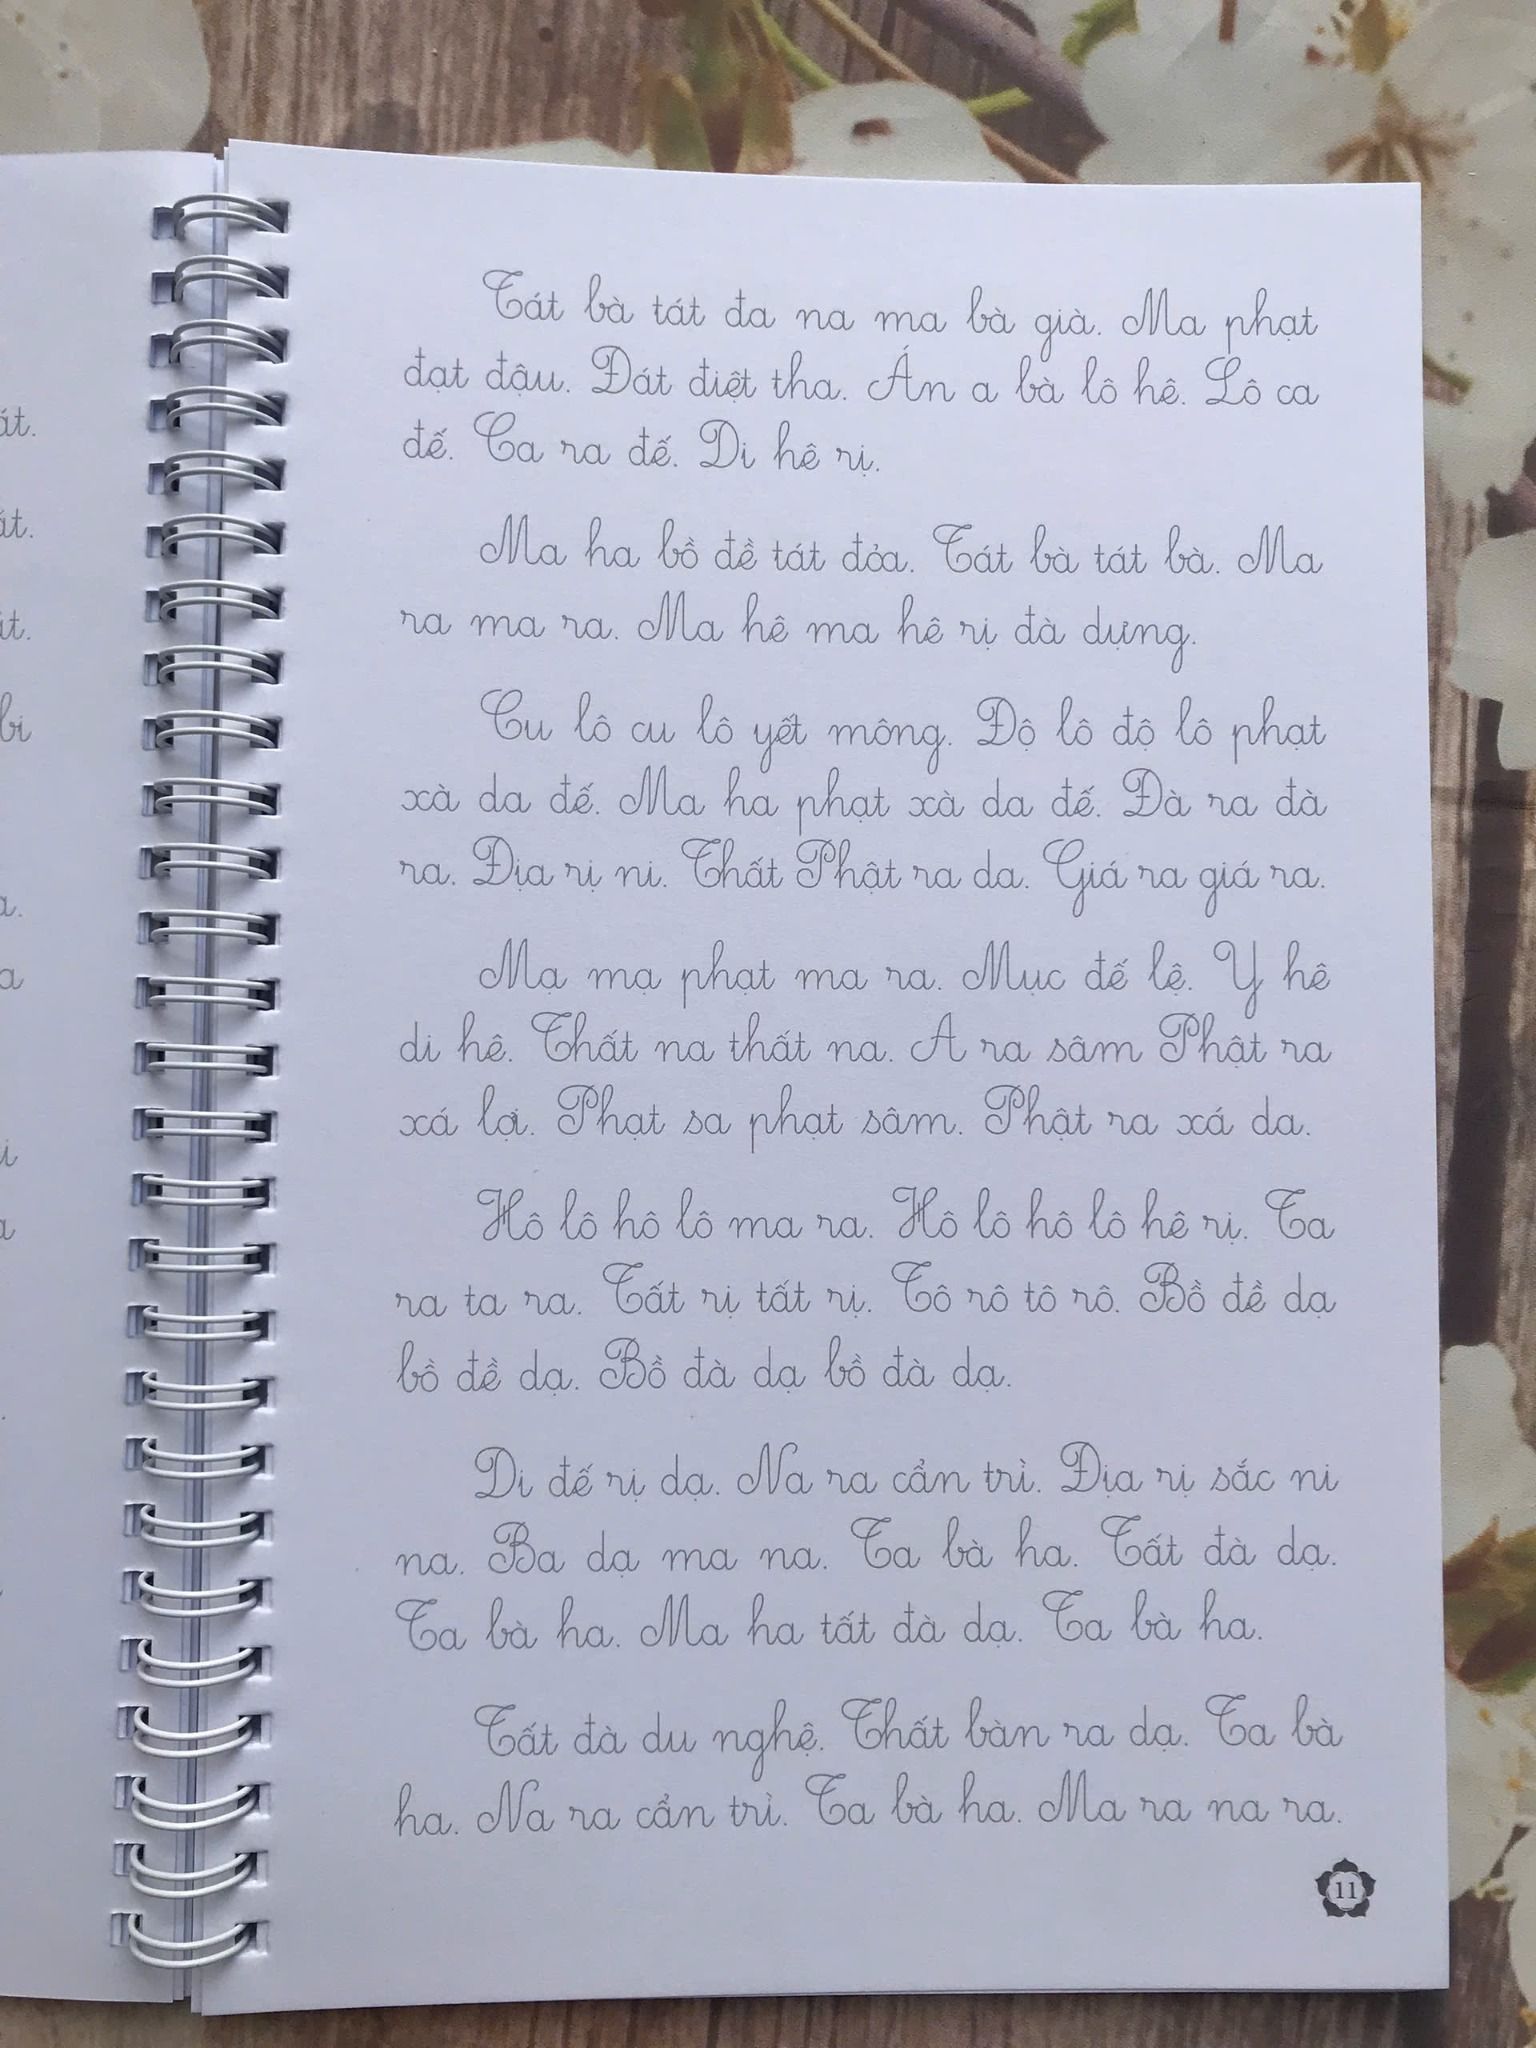 Tát bà tát đa na ma bà già. Ma phạt
đạt đậu. Đát điệt tha. Án a bà lô hê. Lô ca
đế. Ca ra đế. Di hê rị.
Ma ha bồ đề tát đỏa. Tát bà tát bà. Ma
ra ma ra. Ma hê ma hê rị đà dựng.
Cu lô cu lô yết mông. Độ lô độ lô phạt
xà da đế. Ma ha phạt xà da đế. Đà ra đà
ra. Địa rị ni. Thất Phật ra da. Giá ra giá ra.
Mạ mạ phạt ma ra. Mục đế lệ. Y hê
di hê. Thất na thất na. A ra sâm Phật ra
xá lợi. Phạt sa phạt sâm. Phật ra xá da.
Hô lô hô lô ma ra. Hô lô hô lô hê rị. Ta
ra ta ra. Tất rị tất rị. Tô rô tô rô. Bồ đề dạ
bồ đề dạ. Bồ đà dạ bồ đà dạ.
Di đế rị dạ. Na ra cẩn trì. Địa rị sắc ni
na. Ba dạ ma na. Ta bà ha. Tất đà dạ.
Ta bà ha. Ma ha tất đà dạ. Ta bà ha.
Tất đà du nghệ. Thất bàn ra dạ. Ta bà
ha. Na ra cẩn trì. Ta bà ha. Ma ra na ra.
11